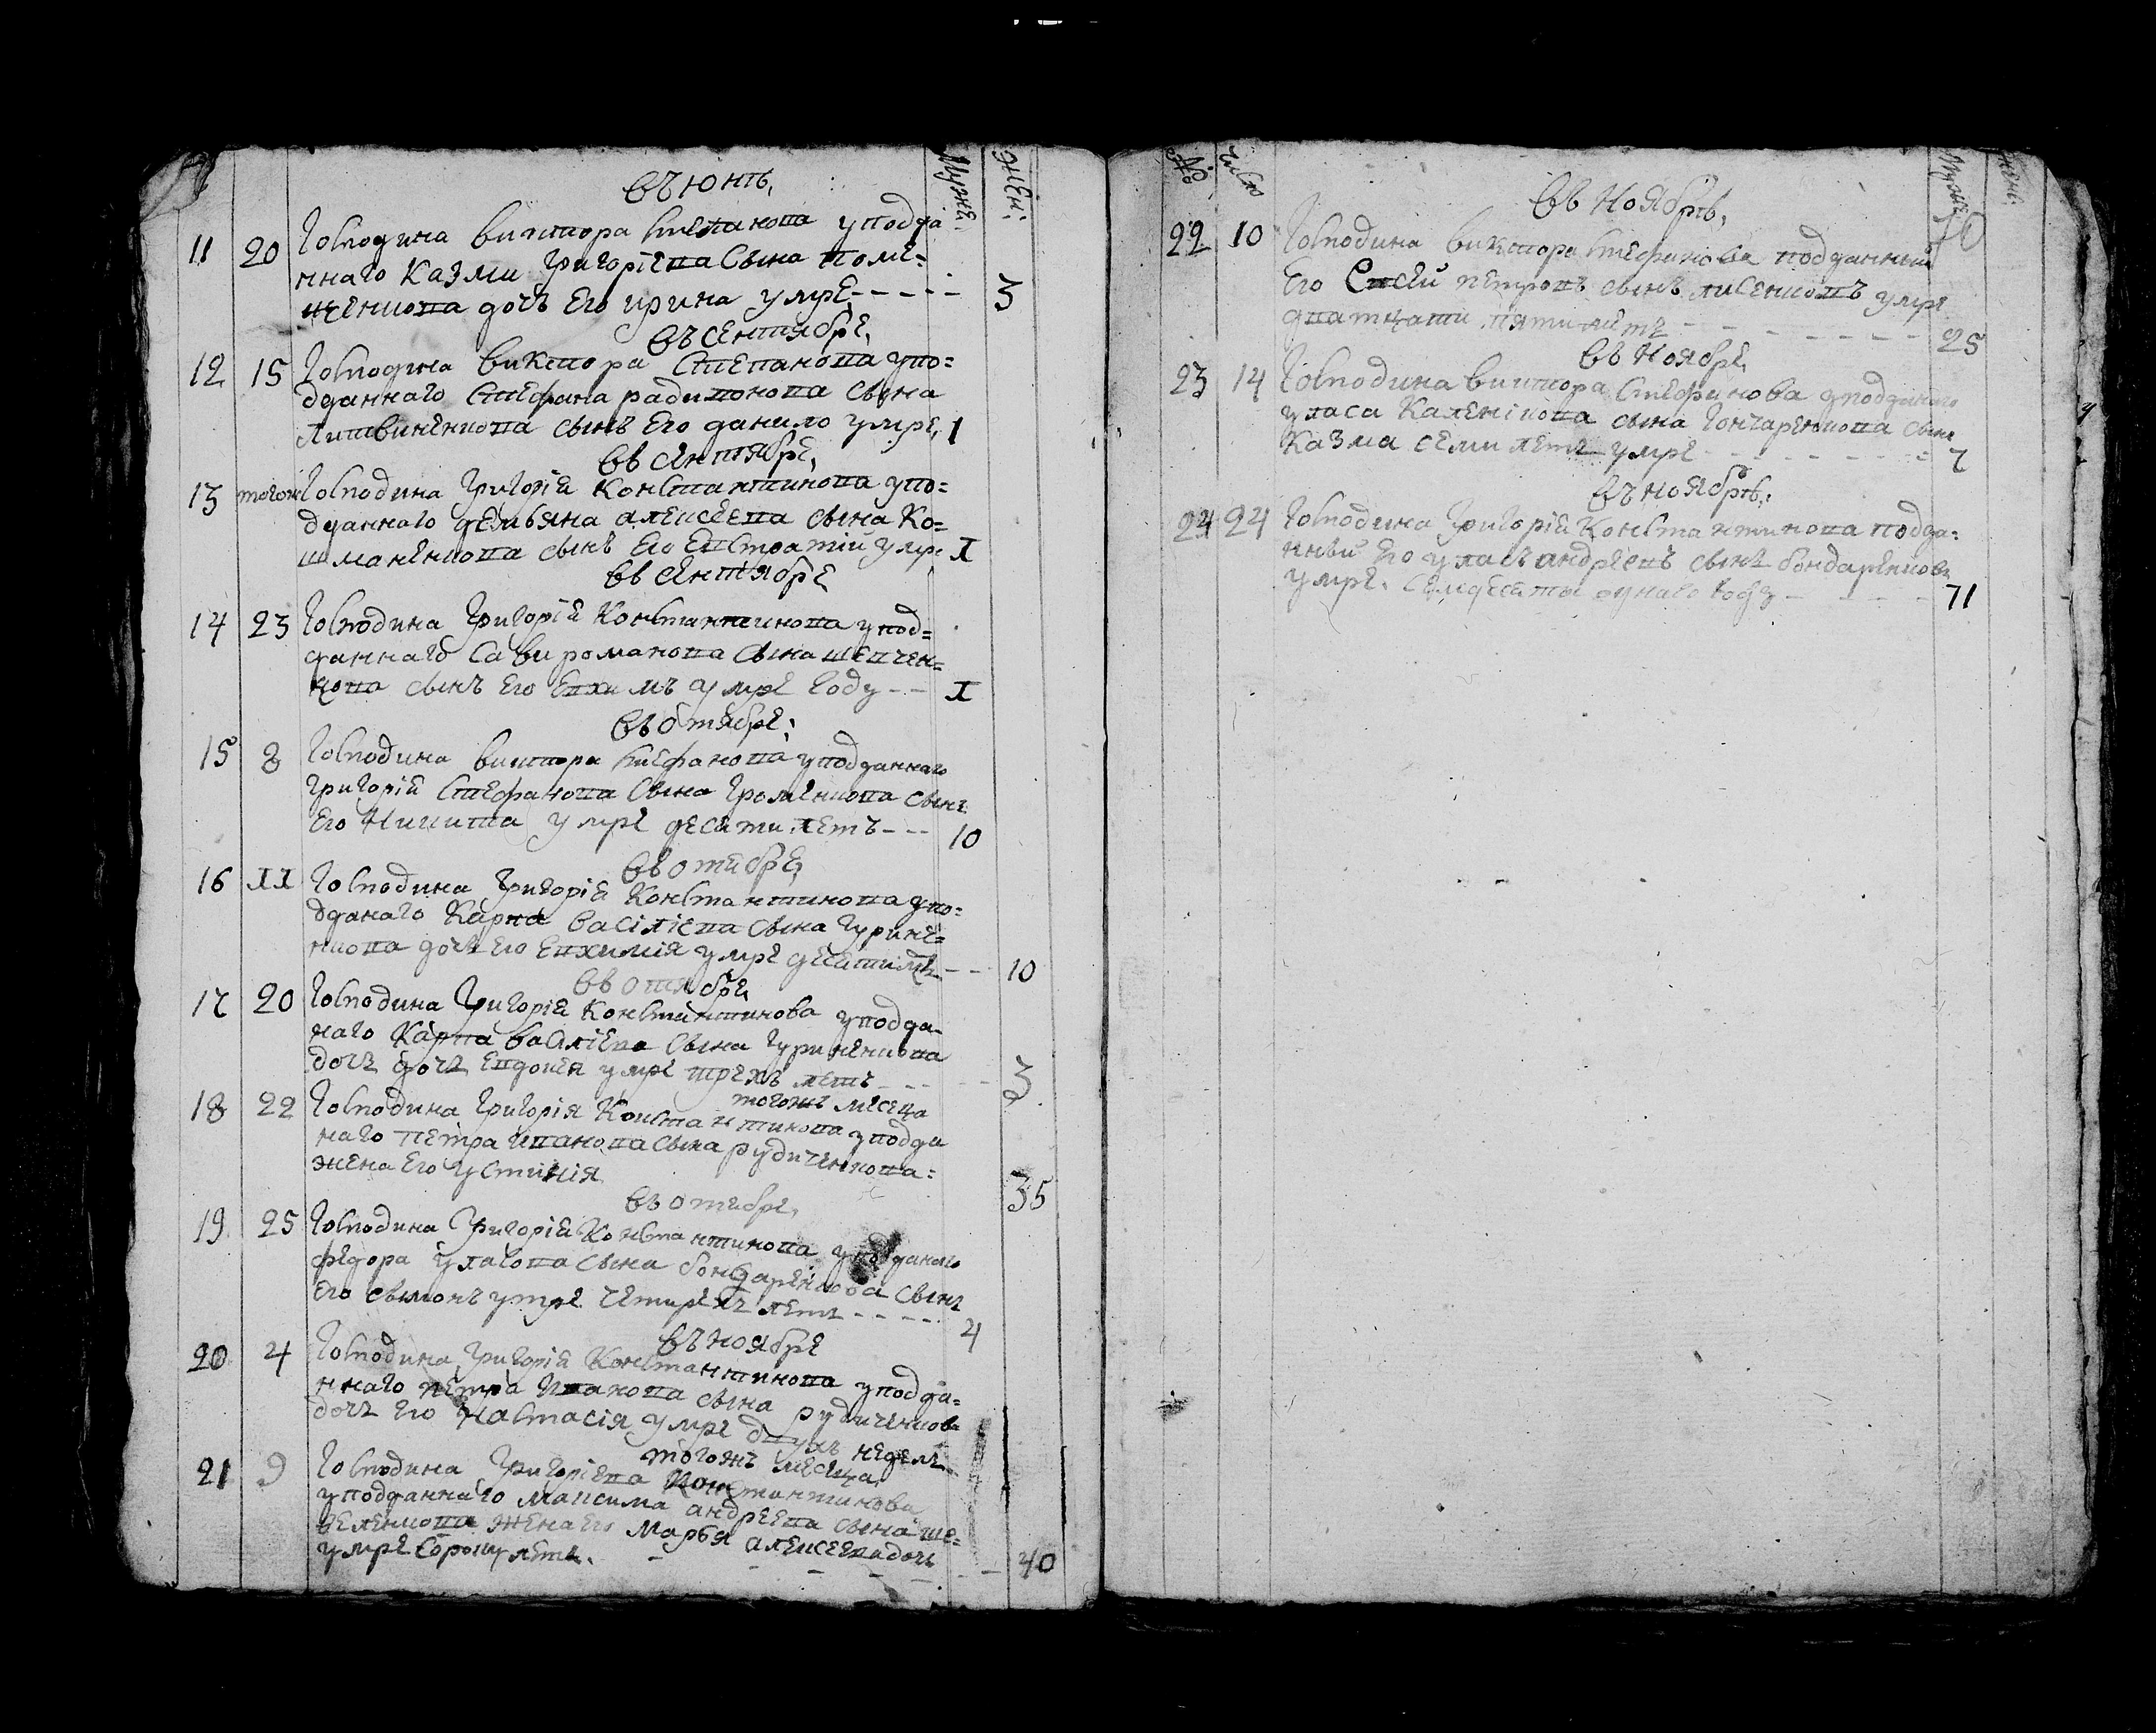 Муже жен:
въ юнѣ,
11 20 Господина виктора степанова у подда
ннаго казми григорієва сына
доч его ирина умре 3
въ сентябре,
12 15 Господина виктора степанова у по=
дданнаго стефана радивонова сына
литвиненкова сынъ его данило умре, 1
въ сентябре,
13 тогож Господина григорій константинова упо=
дданнаго демьяна алексеева сына ко=
шманенкова сынъ его евстратій умре 1
въ сентябре
14 23 Господина григорій константинова у под=
даннаго сави романова сына шевчен=
кова сынъ его евхимъ умре году 1
въ отябре,
15 8 Господина виктора стефанова у подданнаго
григорій стефанова сына громенкова сынъ
его никита умре десяти летъ 10
въ отябре,
16 11 Господина григорій константинова упо=
дданаго карпа василіева сына гурине=
нкова доч его евхимія умре десяти лѣ 10
въ отябре,
17 20 Господина григорій константинова у подда
наго карпа василіева сына гуриненкова
доч доч евдокея умре трехъ летъ 3
тогожъ месеца
18 22 Господина григорія константинова у подда
наго петра иванова сына рудиченкова=
жена его устинія 35
въ отябре,
19 25 Господина григорій константинова у подданаго
федора уласова сына бондаренкова сынъ
его сымонъ умре четирехъ летъ 4
въ ноябре
20 4 Господина григорій константинова у подда=
ннаго петра иванова сына рудиченкова
доч его настасія умре двухъ недель
тогожъ месеца
21 9 Господина григоріева константинова
у подданнаго максима андреева сына ше=
веленкова жена его марья алексеева доч
умре сороку летъ. 40
№ число Муже жен:
въ Ноябрѣ,
22 10 Господина виктора стефанова подданный
его петровъ сынъ лисенковъ умре
дватцати пяти летъ 25
въ Ноябре,
23 14 Господина виктора стефанова у подданаго
уласа каленікова сына гончаренкова сынъ
казма семи летъ умре 7
въ ноябрѣ,
24 24 Господина григорій константинова подда=
нный его уласъ андреевъ сынъ бондаренковъ
умре. семдесаты году 71